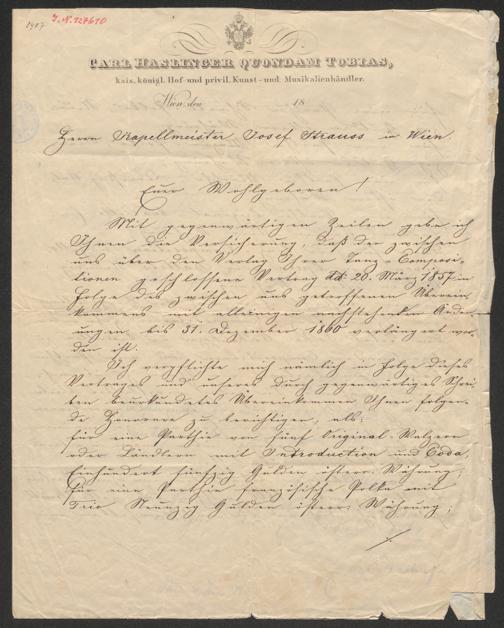 1907
I.N. 127610
CARL HASLINGER QUONDAM TOBIAS,
kais. königl. Hof- und privil. Kunst- und Musikalienhändler.
Wien, den 18
Herrn Kapellmeister Josef Strauss in Wien.
Euer Wohlgeboren!
Mit gegenwärtigen Zeilen gebe ich
Ihnen die Versicherung, daß der zwischen
uns über den Verlag Ihrer Tanz-Composi-
tionen geschlossene Vertrag dd. 20. März 1857 in
Folge des zwischen uns getroffenen Überein
kommens mit alleinigen nachstehenden Änder-
ungen bis 31. Dezember 1860 verlängert wor-
den ist.
Ich verpflichte mich nämlich in Folge dieses
Vertrages und unseres durch gegenwärtiges Schrei
ben beurkundetes Übereinkommen Ihnen folgen-
de Honorare zu berichtigen, als:
für eine Parthie von fünf Original-Walzern
oder Ländlern mit Introduction und Coda,
Einhundert fünfzig Gulden österr. Währung;
für eine Parthie französische Polka mit
Trio Neunzig Gulden österr. Währung;